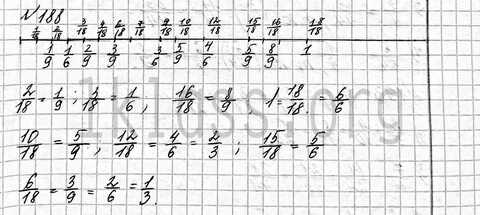 №188
1/18 2/18 3/18 4/18 6/18 7/18 9/18 10/18 12/18 15/18 16/18 18/18
1/9 1/6 2/9 3/9 3/6 5/9 4/6 5/6 8/9 1
2/18 = 1/9 ; 3/18 = 1/6 ; 16/18 = 8/9 , 1 = 18/18 = 6/6
10/18 = 5/9 ; 12/18 = 4/6 = 2/3 ; 15/18 = 5/6
6/18 = 3/9 = 2/6 = 1/3 .
1klass.org